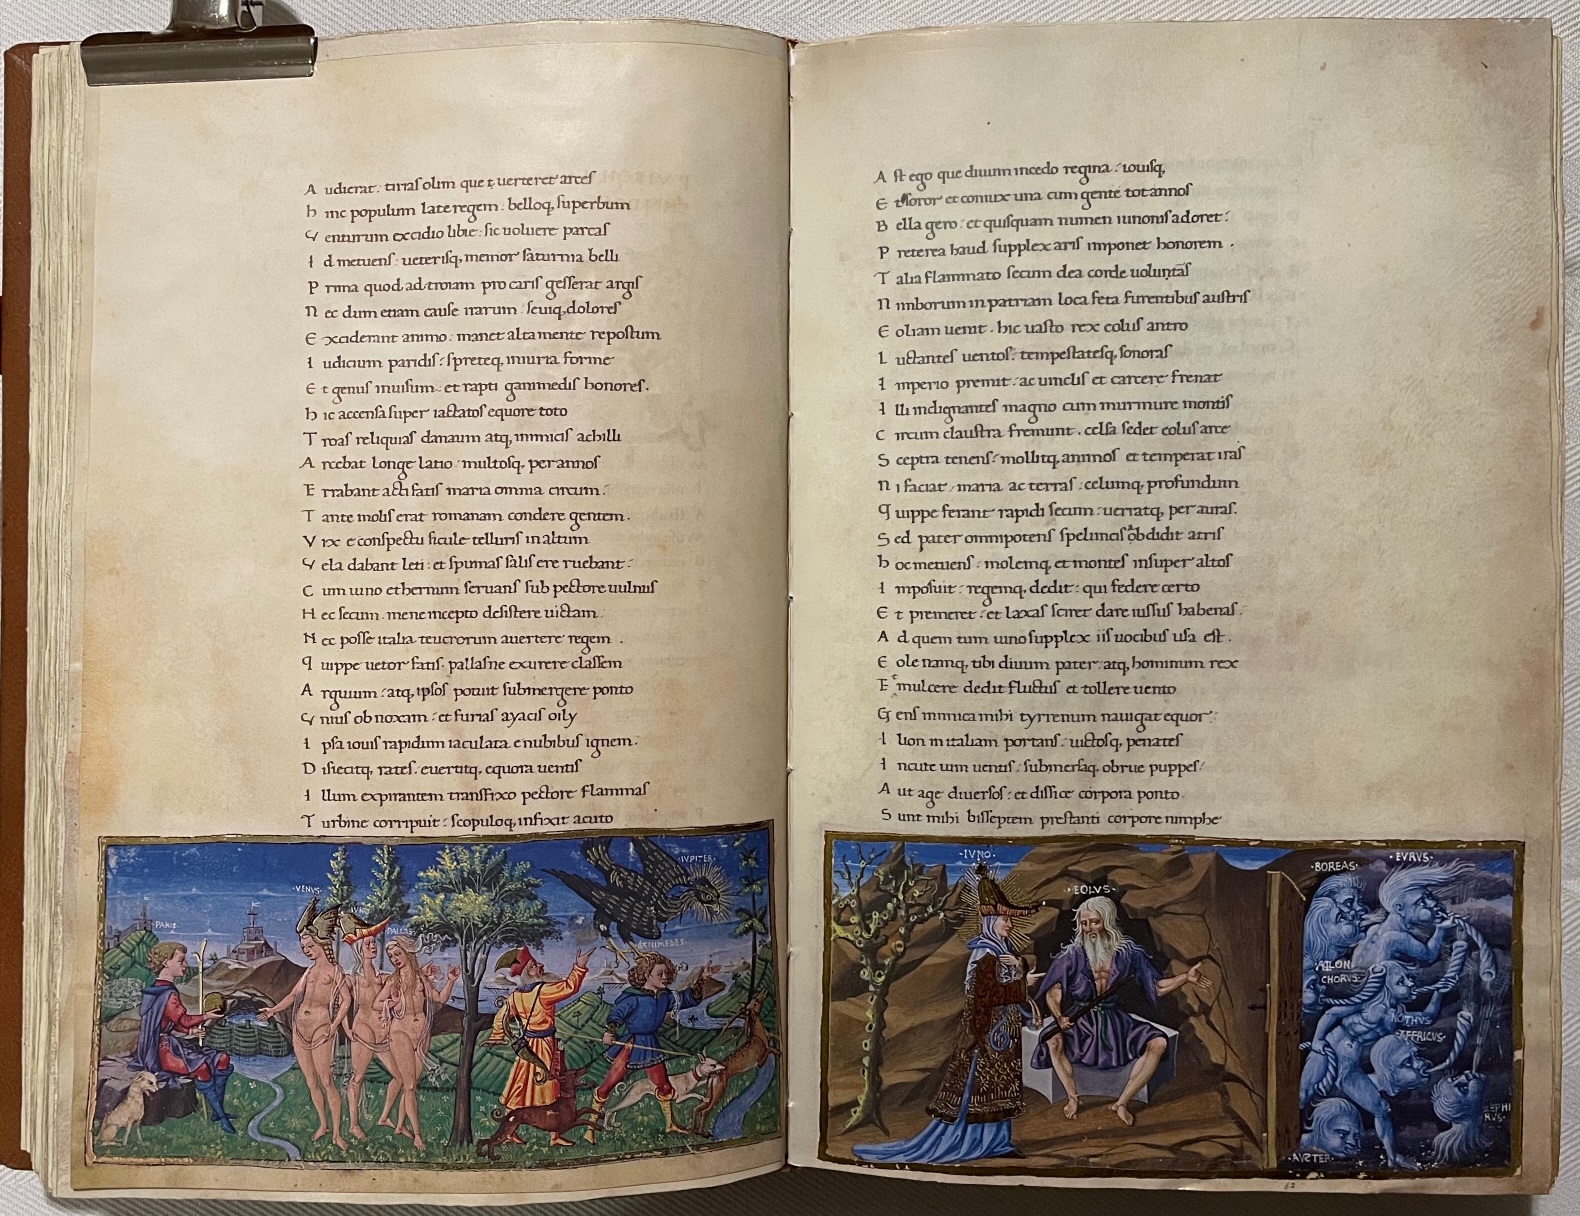 Audierat. tirias olim que uerteret arces
hinc populum late regem: belloq, superbum
Venturum excidio libie: sic uoluere parcas
Id metuens: ueterisq, memor saturnia belli
Prima quod ad troiam pro caris gesserat argis
nec dum etiam cause irarum: seuiq, dolores
Exciderant animo: manet alta mente repostum
Iudicium paridis: spreteq, iniuria forme
Et genus inuisum: et rapti ganimedis honores.
hic accensa super iactatos equore toto
Troas reliquias danaum atq, inmitis achilli
Arcebat longe latio multosq, per annos
Errabant acti fatis maria omnia circum:
Tante molis erat romanam condere gentem.
Vix e conspectu sicule telluris in altum
Vela dabant leti: et spumas salis ere ruebant:
Cum iuno ethernum seruans sub pectore uulnus
Hec secum. mene incepto desistere uictam.
Nec posse italia teucrorum auertere regem.
quippe uetor fatis. pallasne exurere classem
Arguium: atq, ipsos potuit submergere ponto
Vnius ob noxam: et furias ayacis oily
Ipsa iouis rapidum iaculata e nubibus ignem:
Disiecitq, rates. euertitq, equora uentis
Illum expirantem transfixo pectore flammas
Turbine corripuit: scopuloq, infixit acuto
VENVS
IVNO
PALLAS
IVPITER
PARIS
GANIMEDES
Ast ego que diuum incedo regina: iouisq,
Et soror et coniux una cum gente tot annos
Bella gero: et quisquam numen iunonis adoret:
Preterea haud supplex aris imponet honorem.
Talia flammato secum dea corde uolutãs
nimborum in patriam loca feta furentibus austris
Eoliam uenit. hic uasto rex eolus antro
Luctantes uentos: tempestatesq, sonoras
Imperio premit: ac uinclis et carcere frenat
Illi indignantes magno cum murmure montis
Circum claustra fremunt. celsa sedet eolus arce
Sceptra tenens: mollitq, animos et temperat iras
ni faciat maria ac terras: celumq, profundum
quippe ferant rapidi secum: uerratq, per auras.
Sed pater omnipotens speluncis abdidit atris
hoc metuens: molemq, et montes insuper altos
Imposuit: regemq, dedit: qui federe certo
Et premeret: et laxas sciret dare iussus habenas.
Ad quem tum iuno supplex iis uocibus usa est.
Eole namq, tibi diuum pater atq, hominum rex
Et mulcere dedit fluctus et tollere uento
Gens inimica mihi tyrrenum nauigat equor:
Ilion in italiam portans: uictosq, penates
Incute uim uentis: submersaq, obrue puppes:
Aut age diuersos: et dissice corpora ponto.
Sunt mihi bisseptem prestanti corpore nimphe
·IVNO·
·EOLVS·
·BOREAS·
·EVRVS·
AQLON
CHORVS
NOTHVS
AFFRICVS·
ZEPHI
RVS·
·AVSTER·